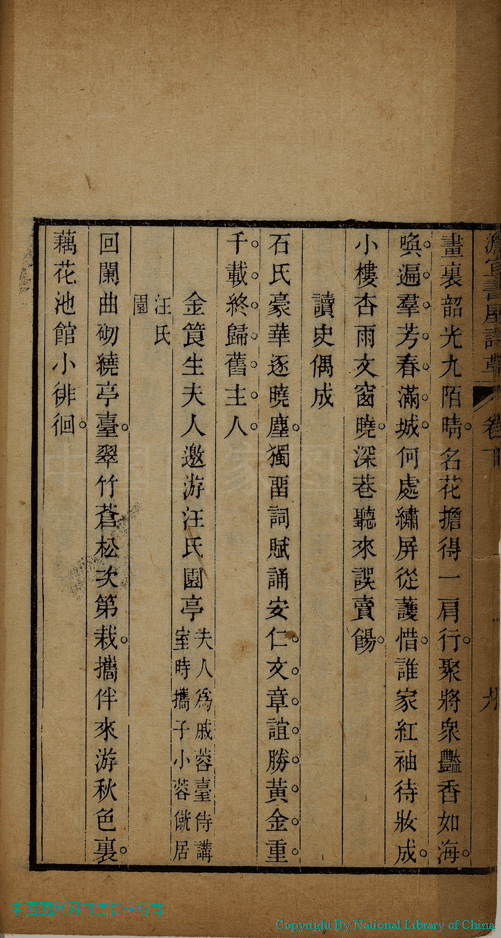 畫裏韶光九陌晴。名花擔得一肩行。聚將衆豔香如海。
喚遍羣芳春滿城。何處繡屏從護惜。誰家紅袖待妝成。
小樓杏雨文窗曉。深巷聽來誤賣餳。
讀史偶成
石氏豪華逐曉塵。獨畱詞賦誦安仁。文章誼勝黃金重。
千載終歸舊主人。
金筤生夫人邀游汪氏園亭
夫人爲戚蓉臺侍講
室時攜子小蓉僦居
汪氏
園
回闌曲砌繞亭臺。翠竹蒼松次第栽。攜伴來游秋色裏。
藕花池館小徘徊。
Copyright By National Library of China